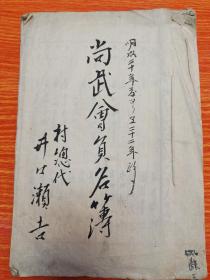 明治三十年ヨリ至三十二年
尚武會員名簿
村總代
井口瀬吉